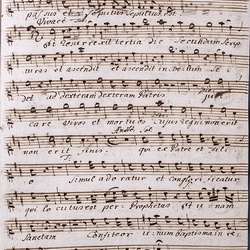 passus et sepultus sepultus est.
Vivace Sol.
Et resurrexit tertia die secundum Scrip
turas et ascendit et ascendit in
det ad dexteram dexteram Patris
care vivos et mortuos cujus regni non erit
non erit finis. qui ex Patre et fili
o simul adoratur et conglorificatur
qui locutus est per Prophetas et unam
Sanctam Confiteor unum baptisma in re